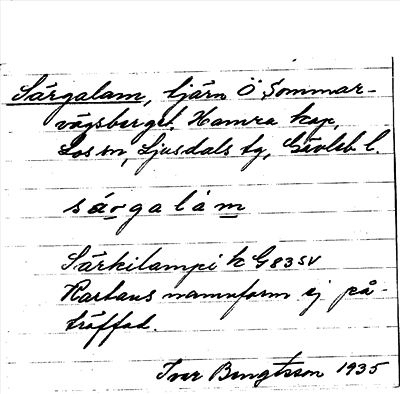 Särgalam, tjärn Ö Sommar-
vägsberget. Hamra kap.
Los sn, Ljusdals tg, Gävleb l.
särgalàm
Särkilampi k G83SV
Kartans namnform ej på-
träffad.
Ivar Bengtsson 1935